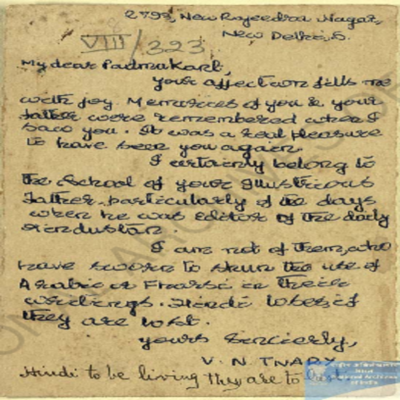 2793, New Rajendra Nagar,
New Delhi, 5.
VIII/323
My dear Padmakant,
Your affection fills me
with joy. Memories of you & your
father were remembered when I
saw you. It was a real pleasure
to have been you again.
I certainly belong to
the school of your illustrious
father, particularly of the days
when he was editor of the daily
Hindustan.
I am not of them, who
have sworn to shun the use of
Arabic or Pharsi in their
writings. Hindi loses if
they are lost.
Yours Sincerely,
V. N. TNARY
Hindi to be living they are to